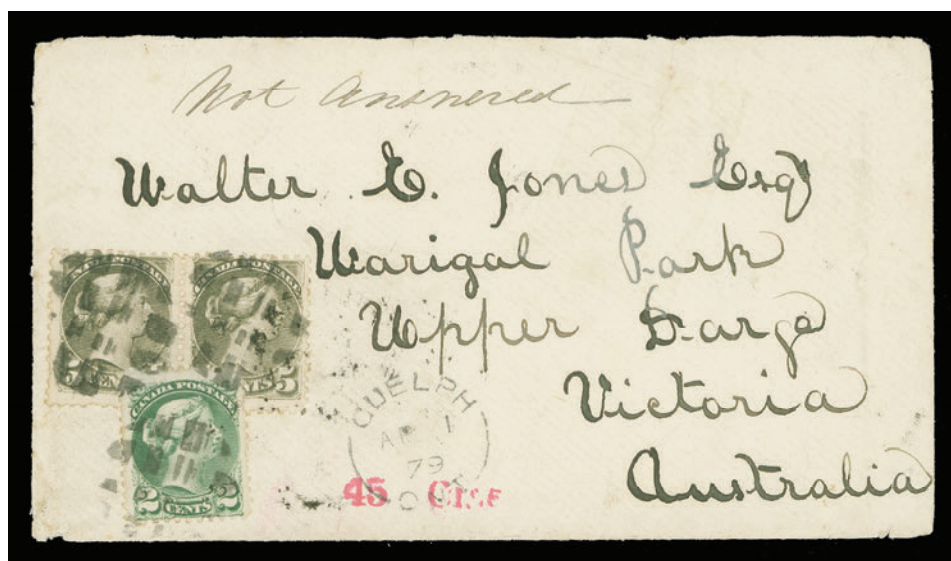 Not Answered
Walter E. Jones Esq
Warigal Park
Upper Dargo
Victoria
Australia
CANADA POSTAGE
5 CENTS 5
CANADA POSTAGE
5 CENTS 5
CANADA POSTAGE
2 CENTS 2
GUELPH
AP 1
79
ONT
45